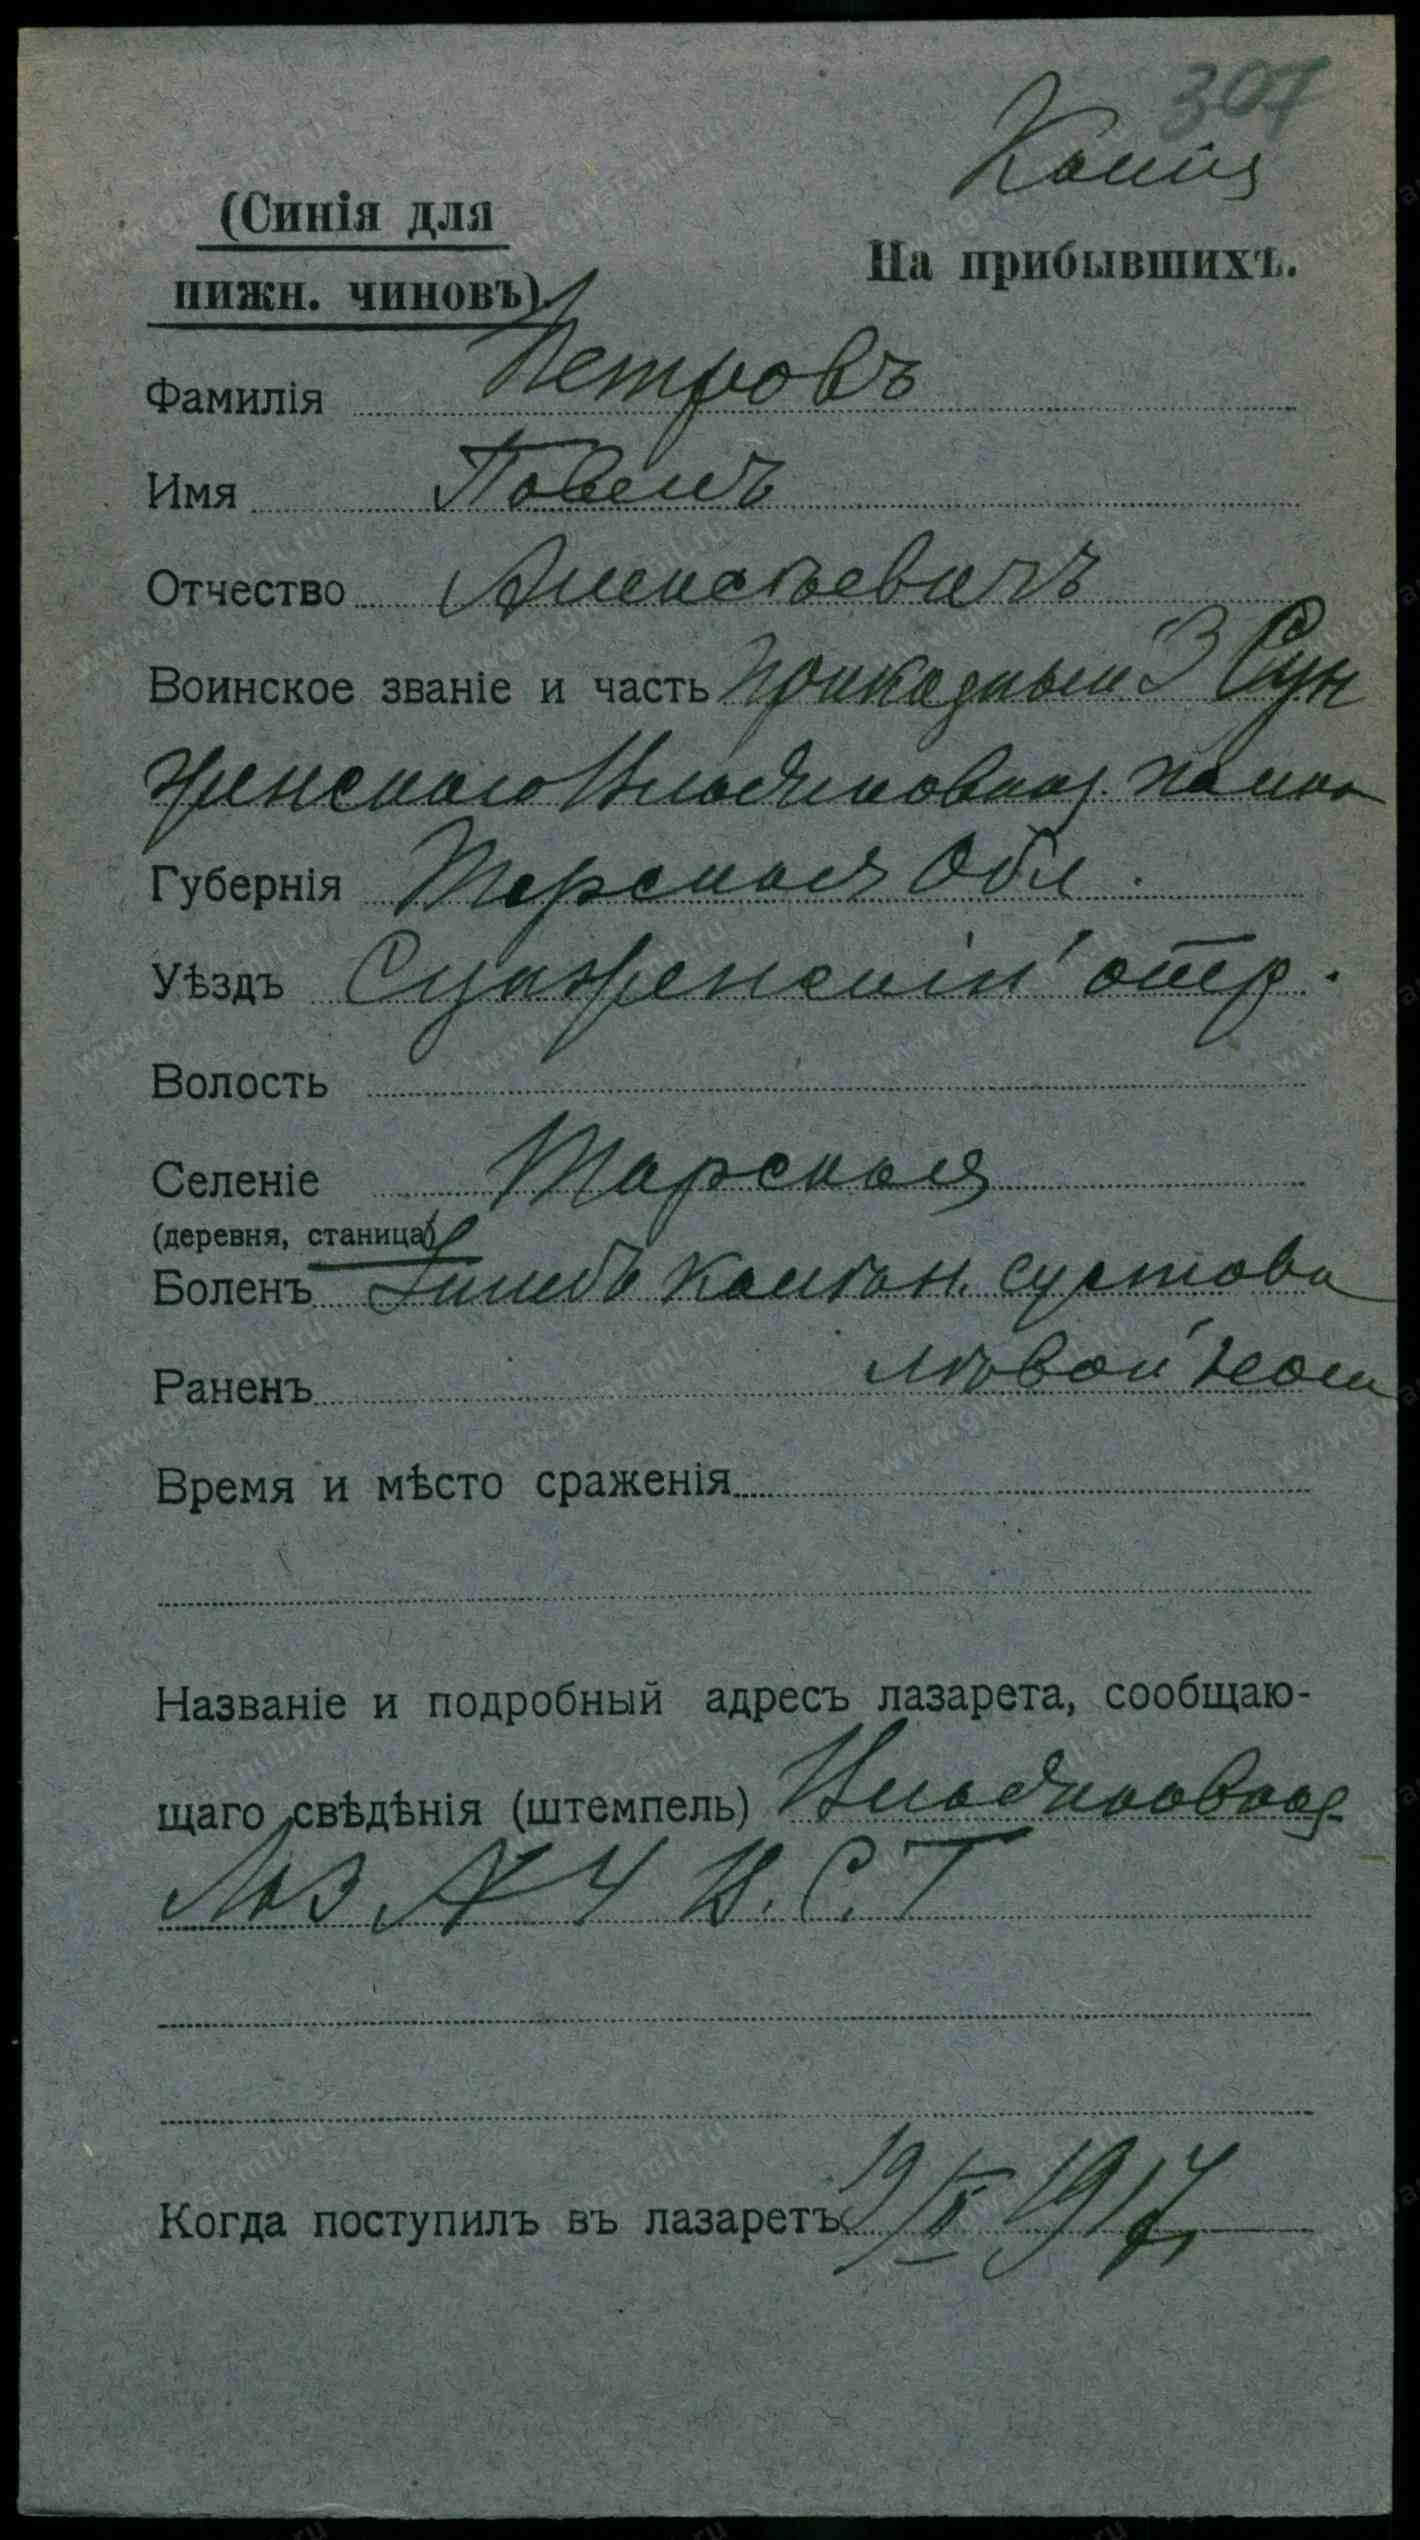 307
Копія
(Синія для
На прибывшихъ.
нижн. чиновъ).
Фамилія Петровъ
Имя Павелъ
Отчество Алексѣевичъ
Воинское званіе и часть приказный 3 Сун
женскаго Владикавказ. полка
Губернія Терская Обл.
Уѣздъ Сунженскій отд.
Волость
Селеніе Тарская
(деревня, станица)
Боленъ Ушибъ колѣн. сустава
Раненъ лѣвой ноги
Время и мѣсто сраженія
Названіе и подробный адресъ лазарета, сообщаю-
щаго свѣдѣнія (штемпель) Владикавказ.
Лаз № 4 В. С. Г
Когда поступилъ въ лазаретъ 1917